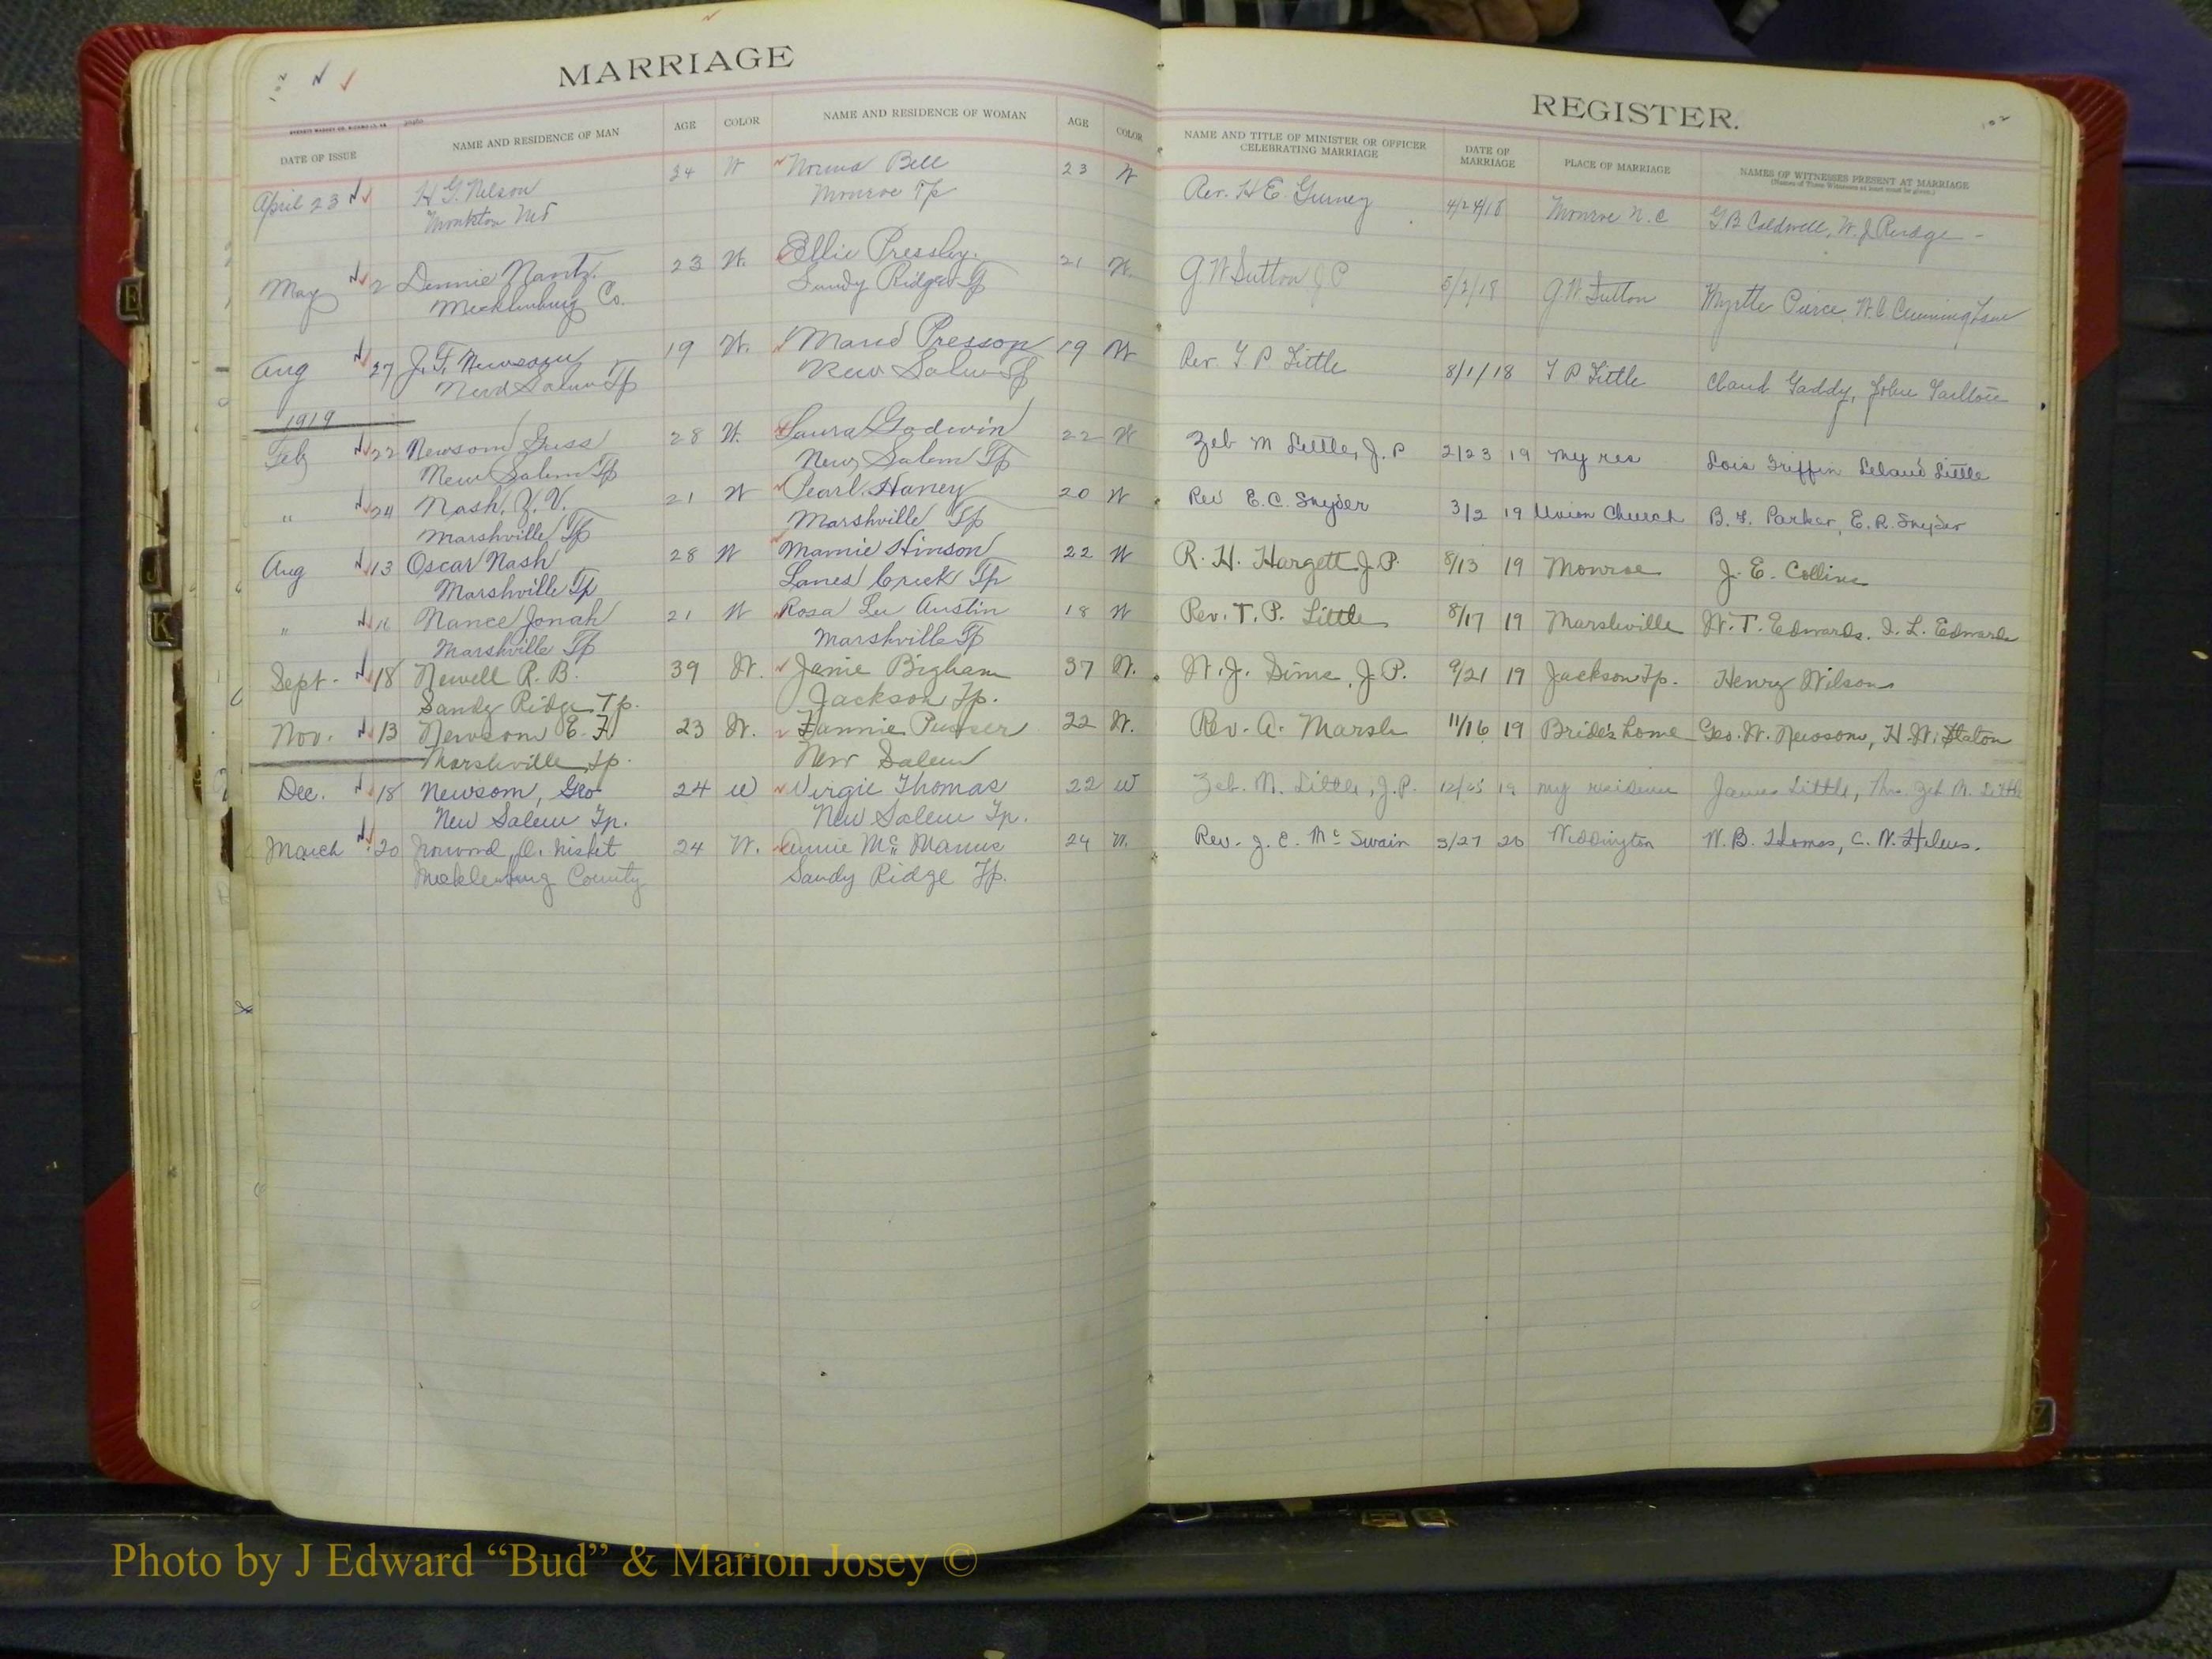 MARRIAGE
REGISTER.
102
DATE OF ISSUE
NAME AND RESIDENCE OF MAN
AGE
COLOR
NAME AND RESIDENCE OF WOMAN
AGE
COLOR
NAME AND TITLE OF MINISTER OR OFFICER
CELEBRATING MARRIAGE
DATE OF
MARRIAGE
PLACE OF MARRIAGE
NAMES OF WITNESSES PRESENT AT MARRIAGE
(Names of Three Witnesses at least must be given.)
April 23 H. G. Nelson 24 W Norma Bell 23 W Rev. H E Gurney 4/24/18 Monroe N. C G B Caldwell, W. J Rudge
Monkton Md Monroe Tp
May 2 Dennie Nantz 23 W. Ellie Pressley. 21 W. G W Sutton J P 5/2/18 G W Sutton Myrtle Pierce, W. C. Cunningham
Mecklenburg Co. Sandy Ridge Tp
Aug 27 J. F. Newsom 19 W. Maud Presson 19 W Rev. T P Little 8/1/18 T P Little Claud Gaddy, John Tarlton
New Salem Tp New Salem Tp
1919
Feb 22 Newsom Guss 28 W. Laura Godwin 22 W Zeb M Little, J. P 2/23 19 my res Lois Griffin Leland Little
New Salem Tp New Salem Tp
" 24 Nash, Z. V. 21 W Pearl Haney 20 W Rev E. C. Snyder 3/2 19 Union Church B. F. Parker, E. R. Snyder
Marshville Tp Marshville Tp
Aug 13 Oscar Nash 28 W Mamie Hinson 22 W R. H. Hargett J. P. 8/13 19 Monroe J. E. Collins
Marshville Tp Lanes Creek Tp
" 16 Nance Jonah 21 W Rosa Lee Austin 18 W Rev. T. P. Little 8/17 19 Marshville W. T. Edwards, I. L. Edwards
Marshville Tp Marshville Tp
Sept. 18 Newell R. B. 39 W. Janie Bigham 37 W. W. J. Sims, J. P. 9/21 19 Jackson Tp. Henry Wilson
Sandy Ridge Tp. Jackson Tp.
Nov. 13 Newsom E. F. 23 W. Fannie Purser 22 W. Rev. A. Marsh 11/16 19 Bride's home Geo. W. Newsom, H. W. Staton
Marshville Tp. New Salem
Dec. 18 Newsom, Geo 24 W Virgie Thomas 22 W Zeb. M. Little, J. P. 12/25 19 my residence James Little, Mrs. Zeb M. Little
New Salem Tp. New Salem Tp.
March 20 Norwood D. Nisbet 24 W. Annie McManus 24 W. Rev. J. E. McSwain 3/27 20 Weddington N. B. Thomas, C. N. Helms.
Mecklenburg County Sandy Ridge Tp.
E
J
K
Photo by J Edward “Bud” & Marion Josey ©